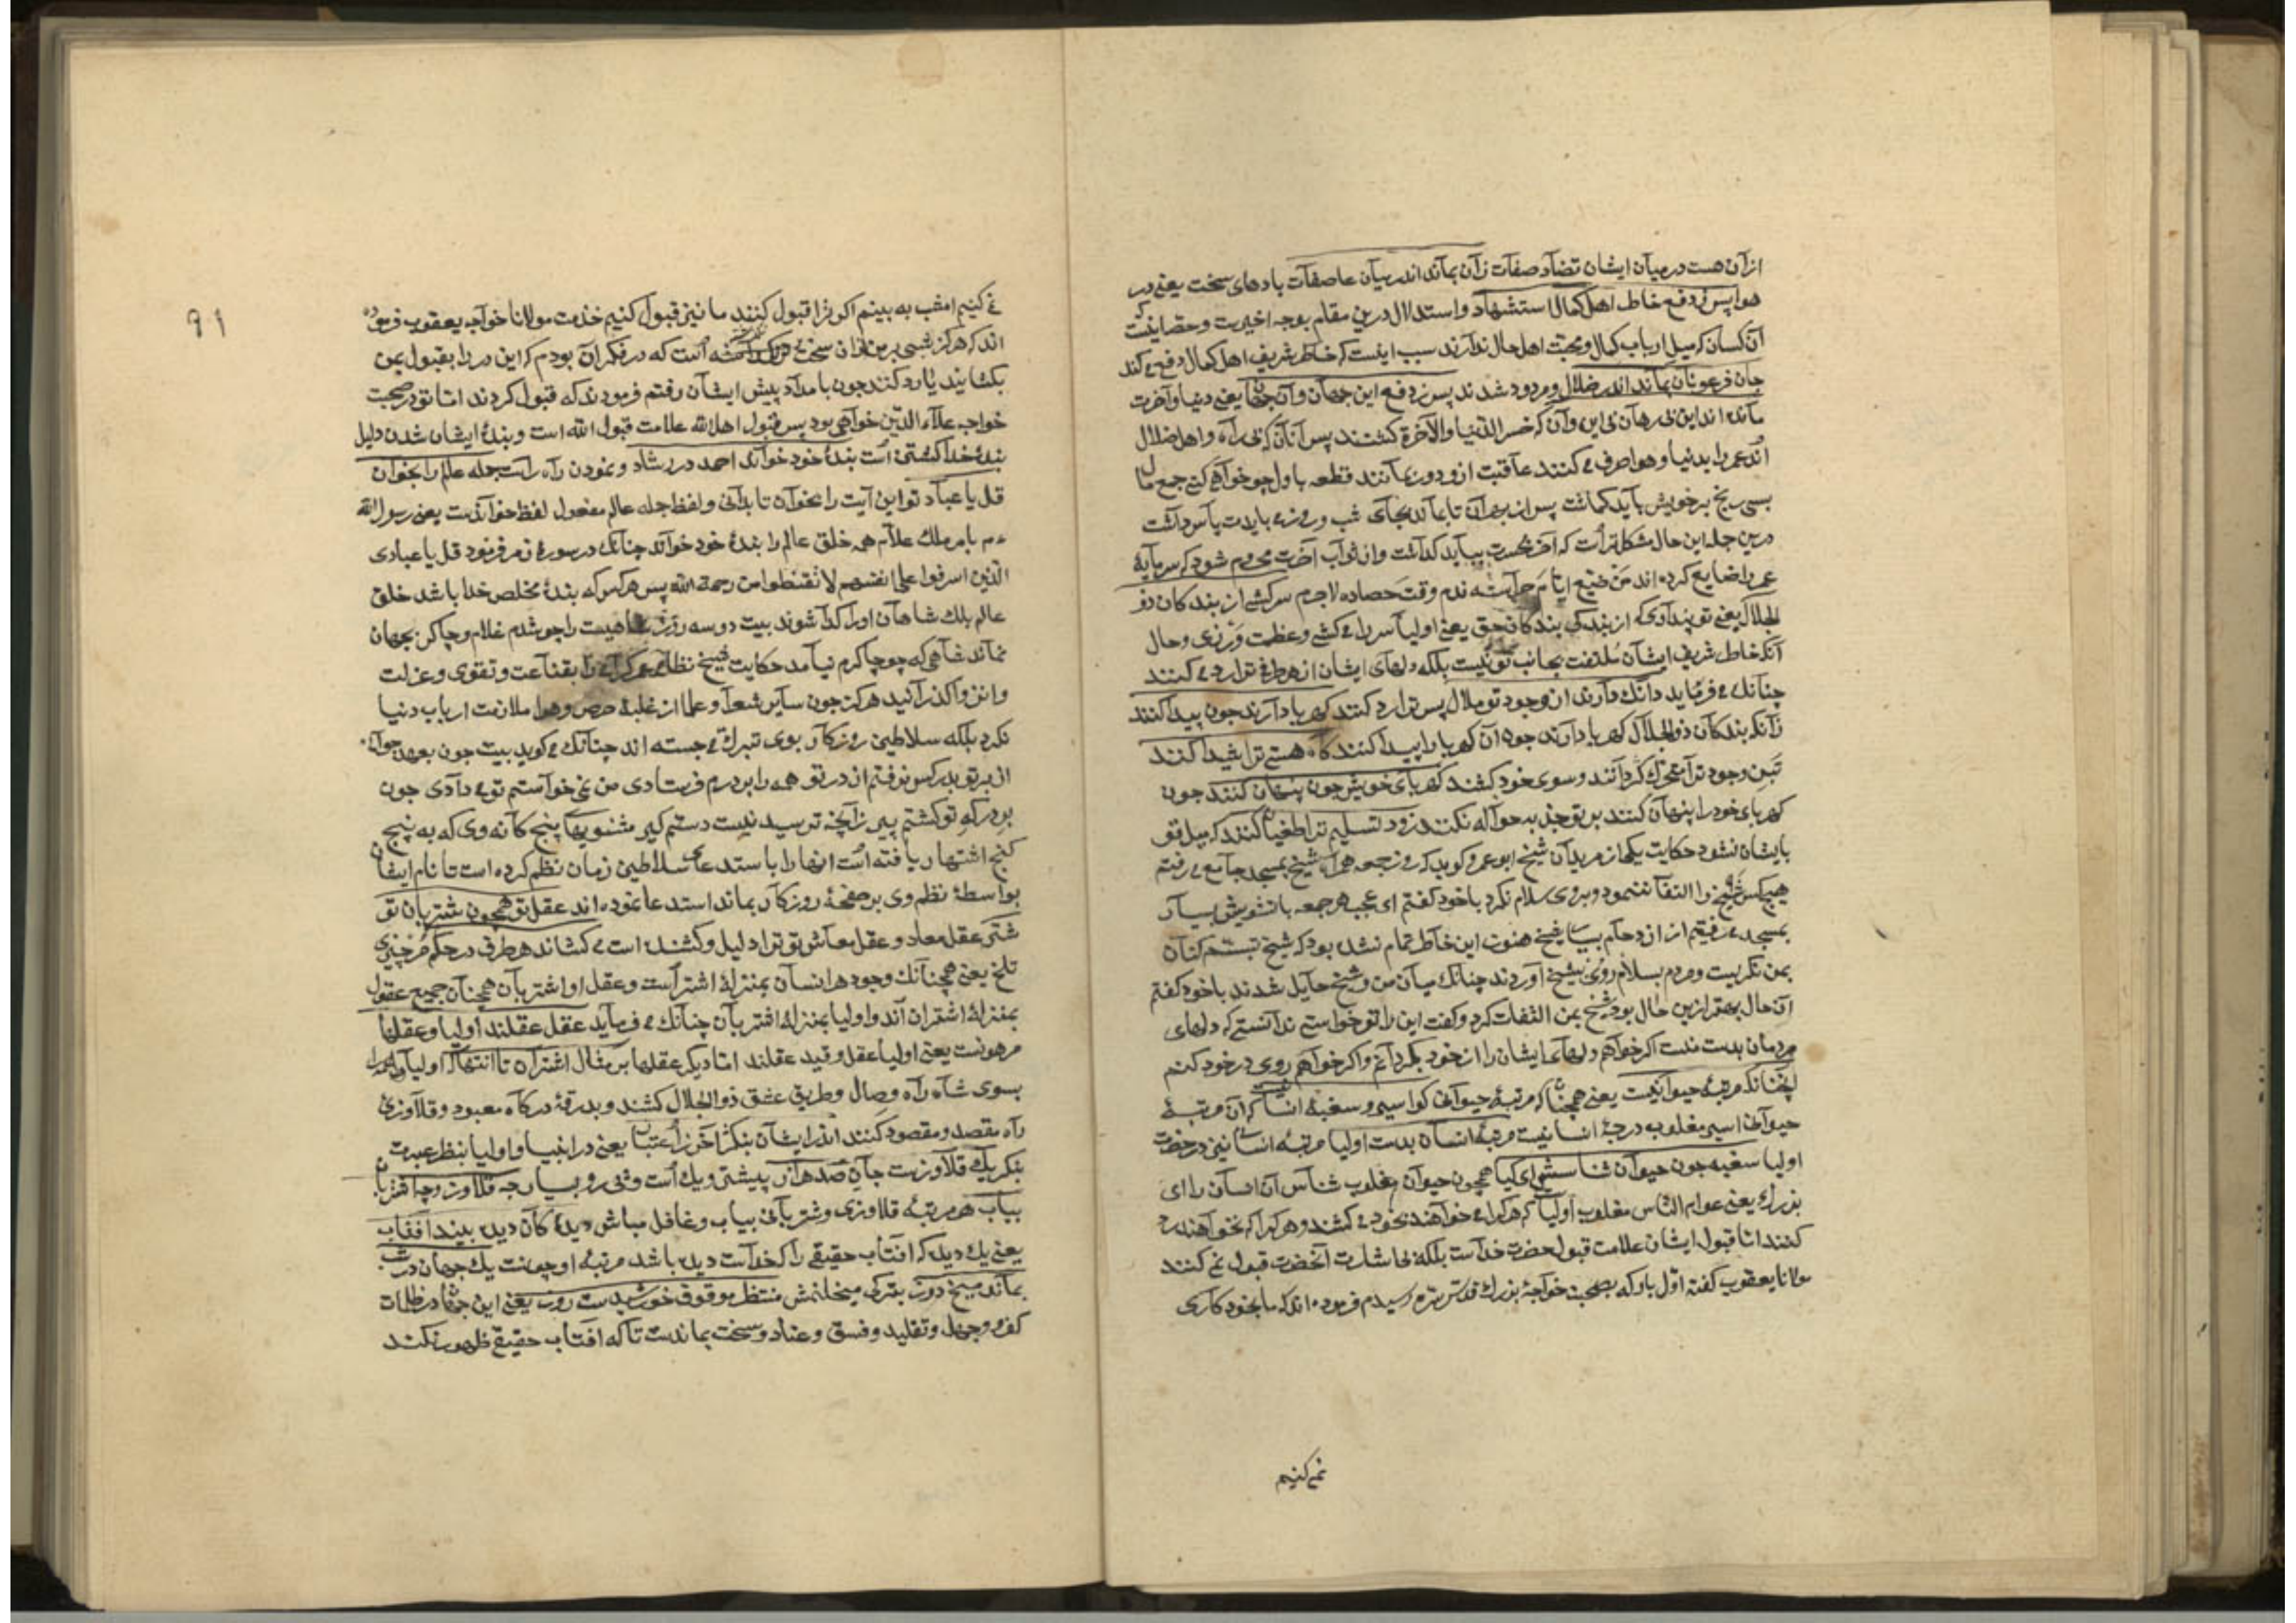 ازآن هست درمیان ایشان تضاد صفات زان بماند اندر میان عاصفات بادهای سخت یعنی در
هوا پس در دفع خاطر اهل کمال استشهاد و استدلال درین مقام بوجه اخیرست و حقانیت
آن کسان که میل ارباب کمال و محبت اهل حال ندارند سبب اینست که خاطر شریف اهل کمال دفع می کند
جان فرعونان بماند اندر ضلال و مردود شدند پس زدفع این جهان و آن جهان یعنی دنیا و آخرت
مانده اند این بی رهان بی این و آن که خسر الدنیا والآخرة کشتند پس آنان که بی راه و اهل ضلال
اند عمر را بدنیا و هوا صرف می کنند عاقبت ازو دور بمانند قطعه باول چو خواهی کنی جمع مال
بسی رنج بر خویش باید کماشت پس از بهر آن تا بماند بجای شب و روز می بایدت پاس داشت
درین جمله این حال مشکلترست که آخر بحسرت بباید کذاشت و از ثواب آخرت محروم شود که سرمایهٔ
عمر را ضایع کرده اند من ضیع ایام حراثته ندم وقت حصاده لاجرم سرکشی از بندکان ذو
الجلال یعنی تو پنداری که از بندکی بندکان حق یعنی اولیا سر را می کشی و عظمت ورزی و حال
آنکه خاطر شریف ایشان ملتفت بجانب تو نیست بلکه دلهای ایشان از هر طرف ترا رد می کنند
چنانک می فرماید دانک دارند از وجود تو ملال پس ترا رد کنند کهربا دارند چون پیدا کنند
زانکه بندکان ذوالجلال کهربا دارند چون آن کهربا را پیدا کنند کاه هستی ترا شیدا کنند
تبن وجود ترا متحرک کردانند و سوی خود کشند کهربای خویش چون پنهان کنند چون
کهربای خود را پنهان کنند بر تو جذبه حواله نکنند زود تسلیم ترا طغیان کنند که میل تو
بایشان نشود حکایت یکی از مریدان شیخ ابو عمرو کوید که روز جمعه همراه شیخ بمسجد جامع می رفتیم
هیچکس شیخ را التفات ننمود و بروی سلام نکرد با خود کفتم ای عجب هر جمعه با تشویش بسیار
بمسجد می رفتیم از ازدحام بسیار شیخ هنوز این خاطر تمام نشده بود که شیخ تبسم کنان
بمن نکریست و مردم بسلام روی بشیخ آوردند چنانک میان من و شیخ حایل شدند با خود کفتم
آن حال بهتر ازین حال بود شیخ بمن التفات کرد و کفت این را تو خواستی ندانستی که دلهای
مردمان بدست منست اکر خواهم دلهای ایشان را از خود بکردانم و اکر خواهم روی در خود کنم
آنچنانکه مرتبهٔ حیوانیست یعنی همچنان که مرتبهٔ حیوانی کو اسیر و سغبهٔ انسانیست که آن مرتبهٔ
حیوانی اسیر مغلوب درجهٔ انسانیست مرتبهٔ انسان بدست اولیا مرتبهٔ انسانی نیز در حضرت
اولیا سغبه چون حیوان شناسش ای کیا همچون حیوان مغلوب شناس آن انسان را ای
بزرک یعنی عوام الناس مغلوب اولیا که هر کرا می خواهند بخود می کشند و هر کرا که نخواهند رد
کنند اما قبول ایشان علامت قبول حضرت خداست بلکه بی اشارت آنحضرت قبول نمی کنند
مولانا یعقوب کفته اول بار که بصحبت خواجهٔ بزرک قدس سره رسیدم فرموده اند که ما بخود کاری
نمی کنیم
نمی کنیم امشب به بینم اکر ترا قبول کنند ما نیز قبول کنیم خدمت مولانا خواجه یعقوب فرموده
اند که هرکز شبی بر من ازان سخت تر نکذشته است که در فکر آن بودم که این در را بقبول بمن
بکشایند یا رد کنند چون بامداد پیش ایشان رفتم فرمودند که قبول کردند اما تو در صحبت
خواجه علاء الدین خواهی بود پس قبول اهل الله علامت قبول الله است و بندهٔ ایشان شدن دلیل
بندهٔ خدا کشتن است بندهٔ خود خواند احمد در رشاد و نمودن راه راست جمله عالم را بخوان
قل یا عباد تو این آیت را بخوان تا بدانی و لفظ جمله عالم مفعول لفظ خواندست یعنی رسول الله
عم بامر ملک علام همه خلق عالم را بندهٔ خود خواند چنانک در سورهٔ زمر فرمود قل یا عبادی
الذین اسرفوا علی انفسهم لا تقنطوا من رحمة الله پس هر کس که بندهٔ مخلص خدا باشد خلق
عالم بلک شاهان او را کدا شوند بیت دو سه روز شاهیست را چو شدم غلام و چاکر بجهان
نماند شاهی که چو چاکرم نیامد حکایت شیخ نظامی عمر کرامی را بقناعت و تقوی و عزلت
و انزوا کذرانید هرکز چون سایر شعرا و علما از غلبهٔ حرص و هوا ملازمت ارباب دنیا
نکرد بلکه سلاطین روزکار بوی تبرک می جسته اند چنانک می کوید بیت چون بعهد جوانی
از بر تو بدر کس نرفتم از در تو همه را بر درم فرستادی من نمی خواستم تو می دادی چون
بر درکه تو کشتم پیر زآنچه ترسید نیست دستم کیر مثنویهای پنج کانه وی که به پنج
کنج اشتهار یافته است انها را باستدعای سلاطین زمان نظم کرده است تا نام ایشان
بواسطهٔ نظم وی بر صفحهٔ روزکار بماند استدعا نموده اند عقل تو همچون شتربان تو
شتر عقل معاد و عقل معاش تو ترا دلیل و کشنده است می کشاند هر طرف در حکم مر چیزی
تلخ یعنی همچنانک وجود هر انسان بمنزلهٔ اشترست و عقل او اشتربان همچنان جمیع عقول
بمنزلهٔ اشتران اند و اولیا بمنزلهٔ اشتربان چنانک می فرماید عقل عقلند اولیا و عقلها
مر هونست یعنی اولیا عقل و قید عقلند اما دیکر عقلها بر مثال اشتران تا انتها که اولیا
بسوی شاه راه وصال و طریق عشق ذوالجلال کشند و بدرقهٔ درکاه معبود و قلاوزی
راه مقصد و مقصود کنند اندر ایشان بنکر آخر ز اعتبار یعنی در انبیا و اولیا بنظر عبرت
بنکر یک قلاوزست جان صد هزار پیشتر و یک است و نی رو بسیار چه قلاوز و چه اشتربان
بیاب هر مرتبهٔ قلاوزی و شتربانی بیاب و غافل مباش دیدهٔ کان دیده بیند آفتاب
یعنی یک دیده که آفتاب حقیقی را که خداست دیده باشد مرتبهٔ او چونست یک جهان در شب
بماند میخ دوز بترکی میخلنمش منتظر موقوف خورشیدست روز یعنی این جهان در ظلمات
کفر و جهل و تقلید و فسق و عناد و سخت بماندست تا که آفتاب حقیقی ظهور نکند
91